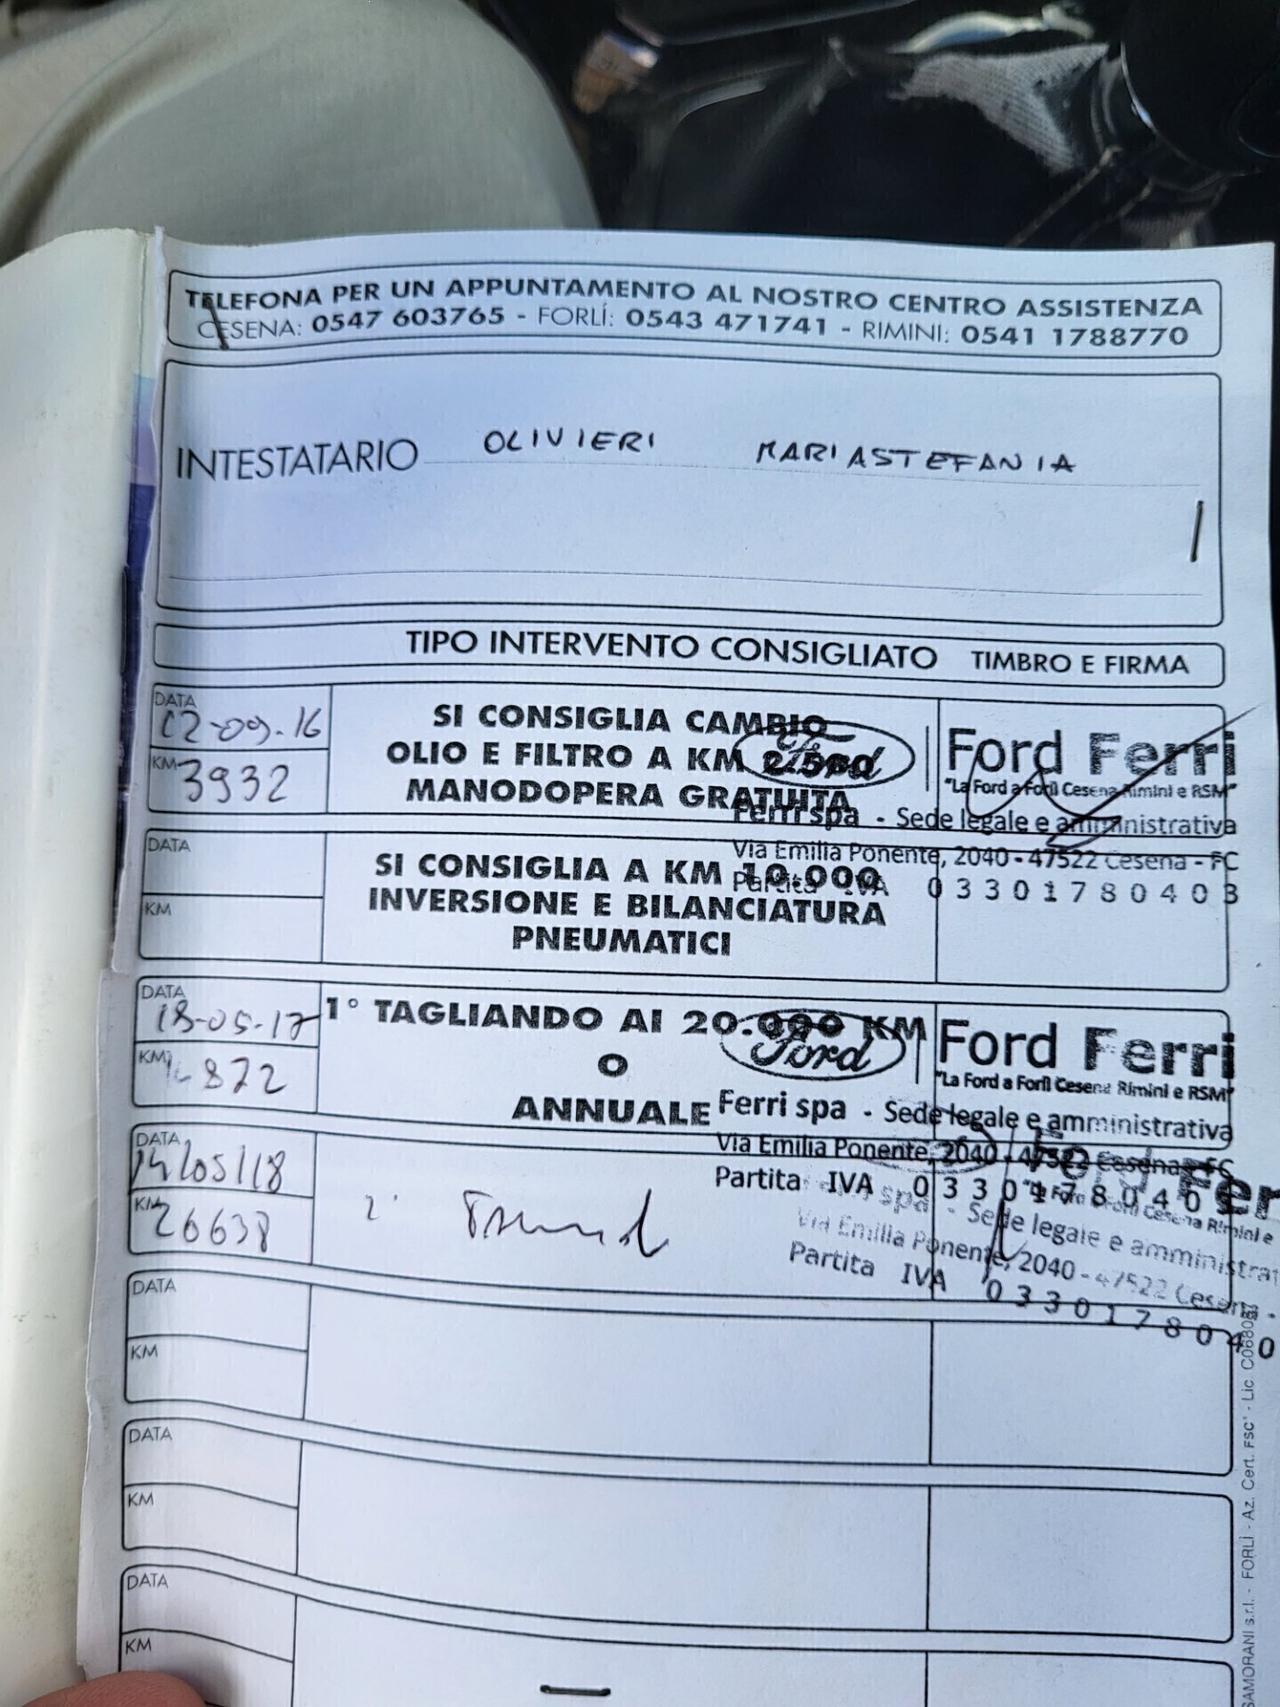 TELEFONA PER UN APPUNTAMENTO AL NOSTRO CENTRO ASSISTENZA
CESENA: 0547 603765 - FORLÌ: 0543 471741 - RIMINI: 0541 1788770
INTESTATARIO OLIVIERI MARIASTEFANIA
TIPO INTERVENTO CONSIGLIATO TIMBRO E FIRMA
DATA
12-09-16
KM
3932
SI CONSIGLIA CAMBIO
OLIO E FILTRO A KM 2.500
MANODOPERA GRATUITA
Ford
Ford Ferri
"La Ford a Forlì Cesena Rimini e RSM"
Ferri spa - Sede legale e amministrativa
Via Emilia Ponente, 2040 - 47522 Cesena - FC
Partita IVA 03301780403
DATA
KM
SI CONSIGLIA A KM 10.000
INVERSIONE E BILANCIATURA
PNEUMATICI
DATA
18-05-17
KM
872
1° TAGLIANDO AI 20.000 KM
O
ANNUALE
Ford
Ford Ferri
"La Ford a Forlì Cesena Rimini e RSM"
Ferri spa - Sede legale e amministrativa
Via Emilia Ponente, 2040 - 47522 Cesena - FC
Partita IVA 0330178040
DATA
14/05/18
KM
26638
2°
Ford Fer
Forlì Cesena Rimini e
spa - Sede legale e amministrat
Via Emilia Ponente, 2040 - 47522 Cesena -
Partita IVA 0330178040
DATA
KM
DATA
KM
DATA
KM
SAMORANI s.r.l. - FORLÌ - Az. Cert. FSC® - Lic. C0680